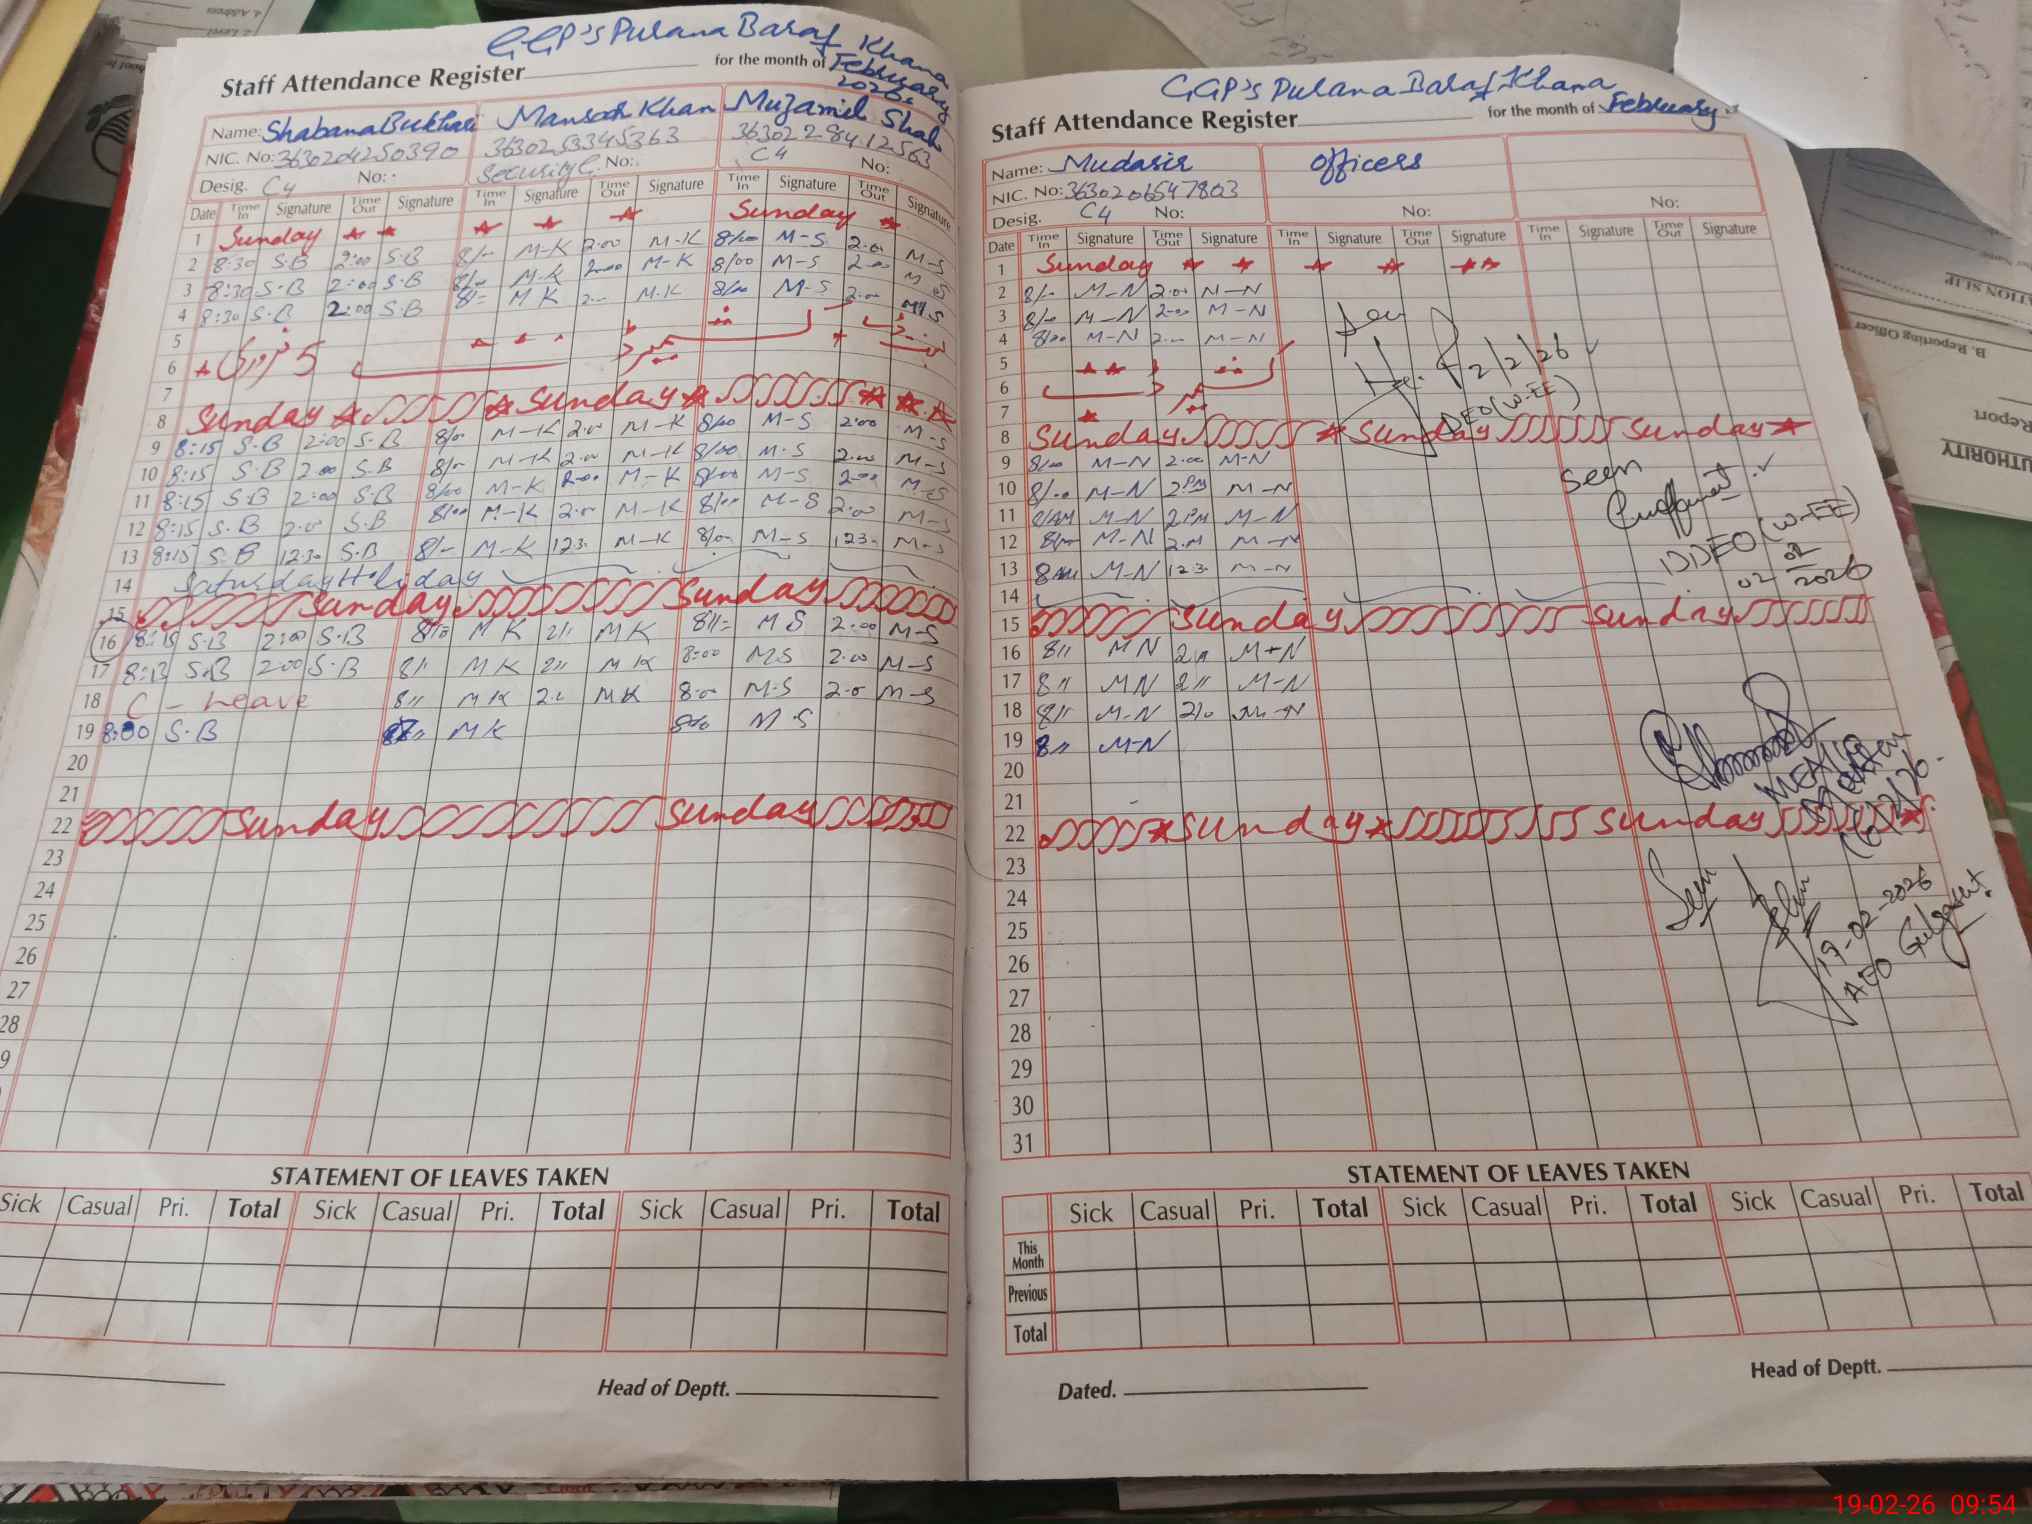 GGP's Purana Baraf Khana
Staff Attendance Register for the month of February 2026
Name: Shabana Bukhari Mansoor Khan Muzamil Shah
NIC. No: 3630204250390 3630253345363 3630228412563
Desig. C4 No: Security No: C4 No:
Date Time In Signature Time Out Signature Time In Signature Time Out Signature Time In Signature Time Out Signature
1 Sunday Sunday
2 8:30 S.B 2:00 S.B 8/-- M-K 2.00 M-K 8/00 M-S 2.00 M-S
3 8:30 S.B 2:00 S.B 8/-- M-K 2.00 M-K 8/00 M-S 2.00 M-S
4 8:30 S.B 2:00 S.B 8/= M K 2.-- M.K 8/00 M-S 2.00 M.S
5
6 5 فروری
7
8 Sunday Sunday
9 8:15 S.B 2:00 S.B 8/00 M-K 2.00 M-K 8/00 M-S 2:00 M-S
10 8:15 S.B 2:00 S.B 8/-- M-K 2.00 M-K 8/00 M.S 2.00 M-S
11 8:15 S.B 2:00 S.B 8/00 M-K 2.00 M-K 8/00 M-S 2.00 M-S
12 8:15 S.B 2.00 S.B 8/00 M-K 2.00 M-K 8/00 M-S 2.00 M-S
13 8:15 S.B 1230 S.B 8/-- M-K 123. M-K 8/00 M-S 123- M-S
14 Saturday Holiday
15 Sunday Sunday
16 8:15 S.B 2:00 S.B 8/= M K 2// M K 8//= M S 2.00 M-S
17 8:13 S.B 2:00 S.B 8// M K 2// M K 8:00 M.S 2.00 M-S
18 C - Leave 8// M K 2.0 M K 8.00 M.S 2.0 M-S
19 8:00 S.B 8// M K 8/00 M.S
20
21
22 Sunday Sunday
23
24
25
26
27
28
9
STATEMENT OF LEAVES TAKEN
Sick Casual Pri. Total Sick Casual Pri. Total Sick Casual Pri. Total
Head of Deptt.
GGP's Purana Baraf Khana
Staff Attendance Register for the month of February
Name: Mudasir Officers
NIC. No: 3630206547803
Desig. C4 No: No: No:
Date Time In Signature Time Out Signature Time In Signature Time Out Signature Time In Signature Time Out Signature
1 Sunday
2 8/-- M-N 2.00 M-N
3 8/-- M-N 2.00 M-N
4 8/00 M-N 2.-- M-N
5
6
7
8 Sunday Sunday Sunday
9 8/00 M-N 2.00 M-N
10 8/00 M-N 2PM M-N
11 8/AM M-N 2PM M-N
12 8/00 M-N 2.M M-N
13 8AM M-N 123. M-N
14
15 Sunday Sunday
16 8// M N 2// M-N
17 8// M N 2// M-N
18 8// M-N 2/0 M-N
19 8// M-N
20
21
22 Sunday Sunday
23
24
25
26
27
28
29
30
31
2/2/26
DEO(W-EE)
Seen
DDEO(W-EE)
02 02 2026
Seen
19-02-2026
AEO Gulgasht
STATEMENT OF LEAVES TAKEN
Sick Casual Pri. Total Sick Casual Pri. Total Sick Casual Pri. Total
This Month
Previous
Total
Dated. Head of Deptt.
B. Reporting Officer
19-02-26 09:54